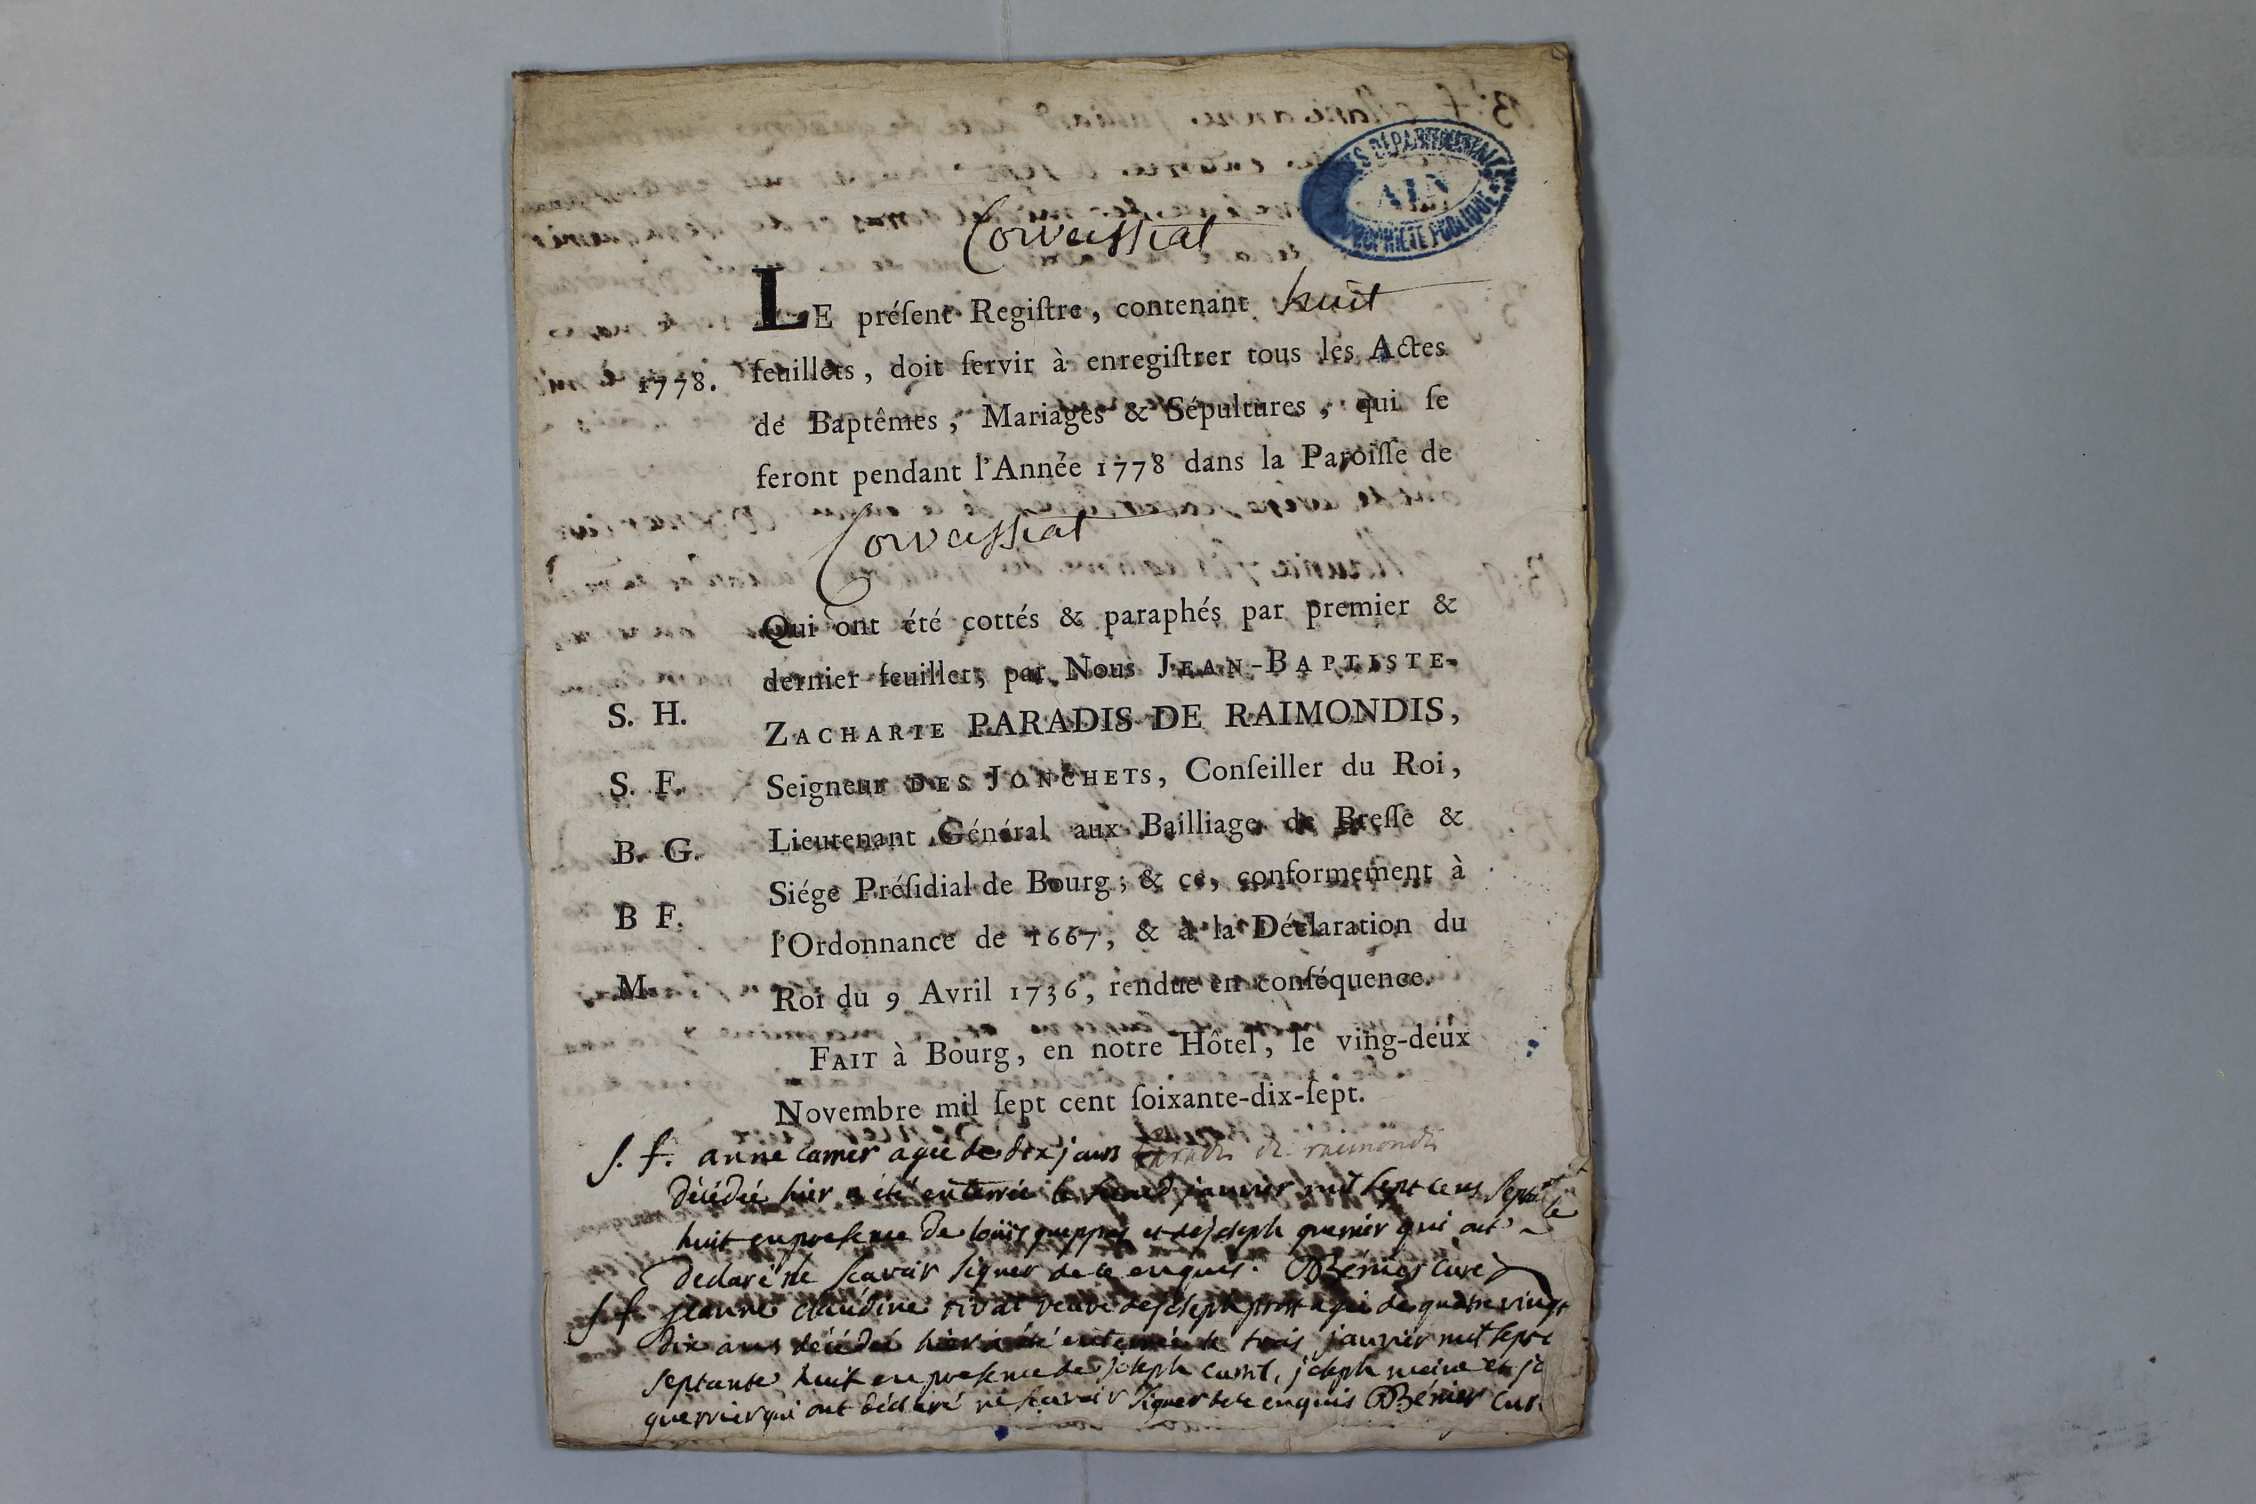 ARCHIVES DÉPARTEMENTALES
AIN
PROPRIÉTÉ PUBLIQUE
Corveissiat
LE préſent Regiſtre, contenant huit
1778. feuillets, doit ſervir à enregiſtrer tous les Actes
de Baptêmes, Mariages & Sépultures, qui ſe
feront pendant l'Année 1778 dans la Paroiſſe de
Corveissiat
Qui ont été cottés & paraphés par premier &
dernier feuillet, par Nous JEAN-BAPTISTE-
S. H. ZACHARIE PARADIS DE RAIMONDIS,
S. F. Seigneur DES JONCHETS, Conſeiller du Roi,
B. G. Lieutenant Général aux Bailliage de Breſſe &
Siége Préſidial de Bourg; & ce, conformement à
B F. l'Ordonnance de 1667, & à la Déclaration du
M. Roi du 9 Avril 1736, rendue en conſéquence.
FAIT à Bourg, en notre Hôtel, le ving-deux
Novembre mil ſept cent ſoixante-dix-ſept.
S. f. anne agée de dix jours paradis de raimondis
décédée hier a été enterrée le janvier mil sept cens septante
huit en presence de loüis et de joseph guerrier qui ont
declaré ne scavoir signer de ce enquis. Bénier curé
S f jeanne claudine rivat veuve de joseph agée de quatre vingt
dix ans décédée hier a été enterrée le trois janvier mil sept c
septante huit en presence de joseph joseph et jo
guerrier qui ont déclaré ne scavoir signer de ce enquis Bénier cur